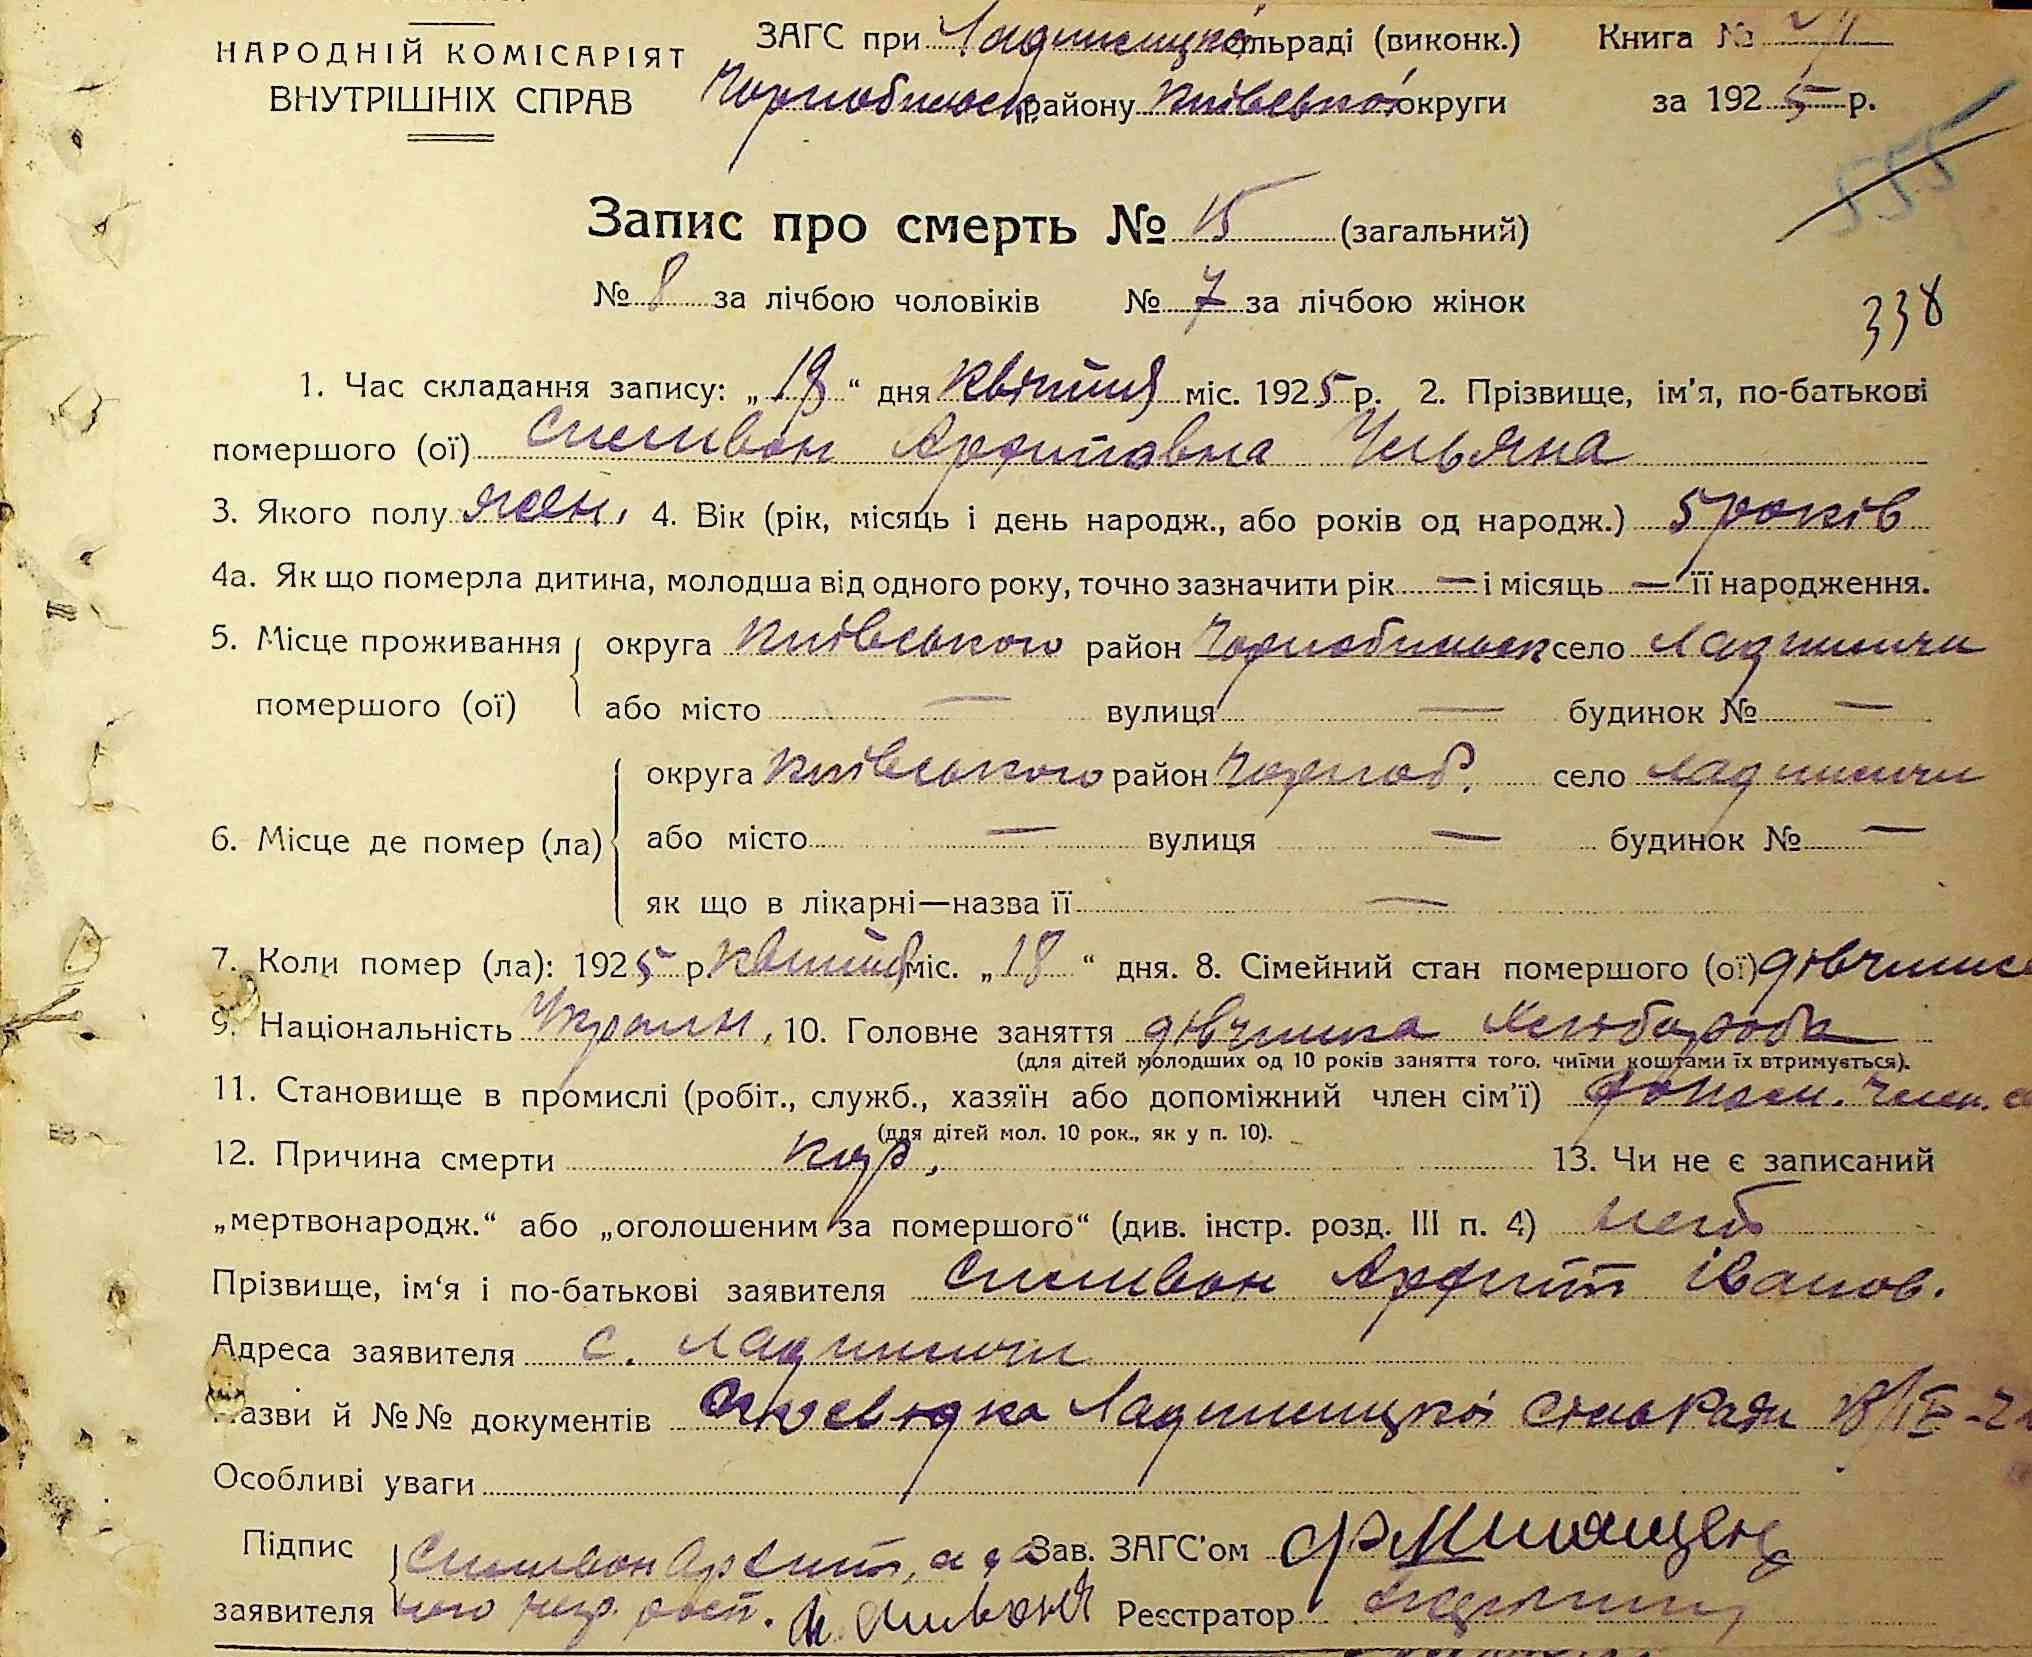 НАРОДНІЙ КОМІСАРІЯТ
ВНУТРІШНІХ СПРАВ
ЗАГС при Ладижицької сільраді (виконк.) Книга №
Чорнобильск району Київської округи за 1925 р.
Запис про смерть № 15 (загальний)
№ 8 за лічбою чоловіків № 7 за лічбою жінок
338
1. Час складання запису: „19“ дня Квітня міс. 1925 р. 2. Прізвище, ім'я, по-батькові
помершого (ої) Силивон Архиповна Ульяна
3. Якого полу жен. 4. Вік (рік, місяць і день народж., або років од народж.) 5 років
4а. Як що померла дитина, молодша від одного року, точно зазначити рік — і місяць — її народження.
5. Місце проживання помершого (ої) округа Київського район Чорнобильск село Ладижичи
або місто — вулиця — будинок № —
6. Місце де помер (ла) округа Київського район Чорноб. село Ладижичи
або місто — вулиця — будинок № —
як що в лікарні—назва її —
7. Коли помер (ла): 1925 р. Квітня міс. „18“ дня. 8. Сімейний стан помершого (ої) дівчина
9. Національність Украин, 10. Головне заняття дівчина Хлібороба
(для дітей молодших од 10 років заняття того, чиїми коштами їх втримується).
11. Становище в промислі (робіт., служб., хазяїн або допоміжний член сім'ї) допом. член.
(для дітей мол. 10 рок., як у п. 10).
12. Причина смерти кір, 13. Чи не є записаний
„мертвонароdж.“ або „оголошеним за помершого“ (див. інстр. розд. III п. 4)
Прізвище, ім'я і по-батькові заявителя Силивон Архип Іванов.
Адреса заявителя с. Ладижичи
Назви й №№ документів Ладижицької сільради 18/IV-2
Особливі уваги
Підпис заявителя Силивон Архип, а за Зав. ЗАГС'ом
його негр. расп. Реєстратор